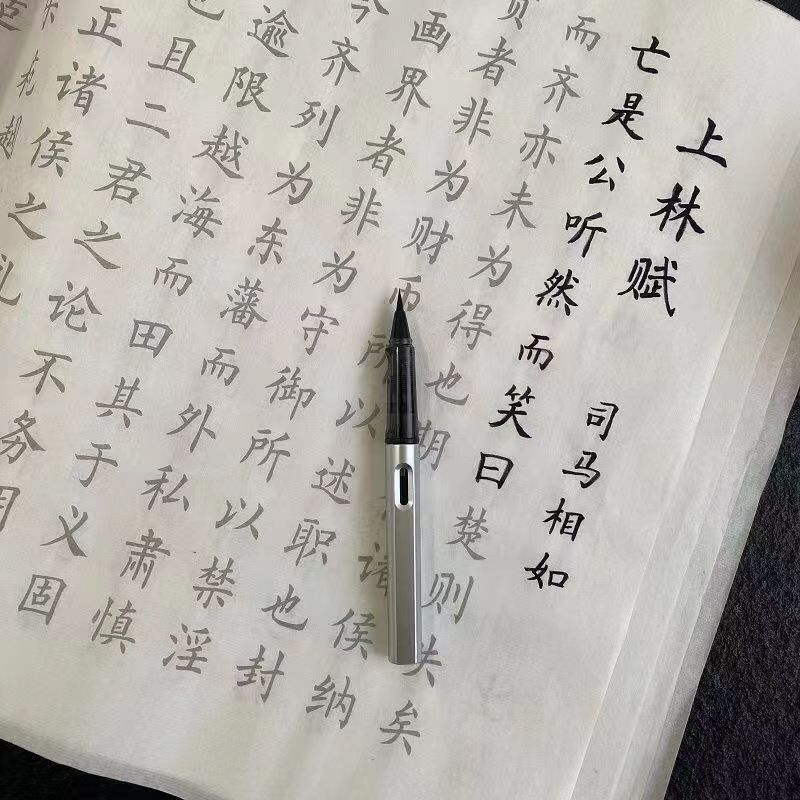 上林赋 司马相如
亡是公听然而笑曰楚则失矣
而齐亦未为得也诸侯纳
贡者非为财币所以述职也封
画界者非为守御所以禁淫
今齐列为东藩而外私肃慎
逾限越海而田其于义固
也且二君之论不务
正诸侯之礼